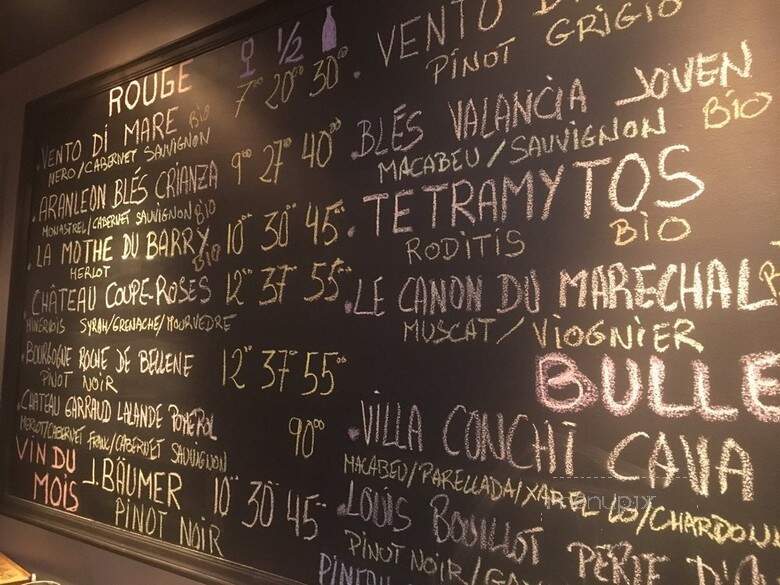 ROUGE 1/2
VENTO DI MARE BIO 7.00 20.00 30.00
NERO/CABERNET SAUVIGNON
ARANLEON BLÉS CRIANZA 9.00 27.00 40.00
MONASTREL/CABERNET SAUVIGNON BIO
LA MOTHE DU BARRY BIO 10.00 30.00 45.00
MERLOT
CHÂTEAU COUPE-ROSES 12.00 37.00 55.00
MINERVOIS SYRAH/GRENACHE/MOURVEDRE
BOURGOGNE ROCHE DE BELLENE 12.00 37.00 55.00
PINOT NOIR
CHATEAU GARRAUD LALANDE POMEROL 90.00
MERLOT/CABERNET FRANC/CABERNET SAUVIGNON
VIN DU MOIS J.BÄUMER 10.00 30.00 45.00
PINOT NOIR
VENTO
PINOT GRIGIO
BLÉS VALANCIA JOVEN
MACABEU/SAUVIGNON BIO
TETRAMYTOS
RODITIS BIO
LE CANON DU MARECHAL
MUSCAT/VIOGNIER
BULLE
VILLA CONCHI CAVA
MACABEU/PARELLADA/XAREL LO/CHARDONN
LOUIS BOUILLOT PERLE
PINOT NOIR/GA